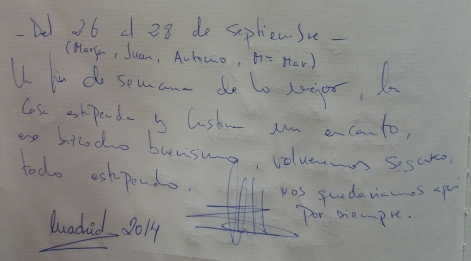 - Del 26 al 28 de septiembre -
(Marga, Juan, Antonio, Mª Mar)
Un fin de semana de lo mejor, la
casa estupenda y Cristina un encanto,
ese bizcocho buenisimo, volveremos seguro,
todo estupendo.
nos quedariamos aqui
por siempre.
Madrid 2014